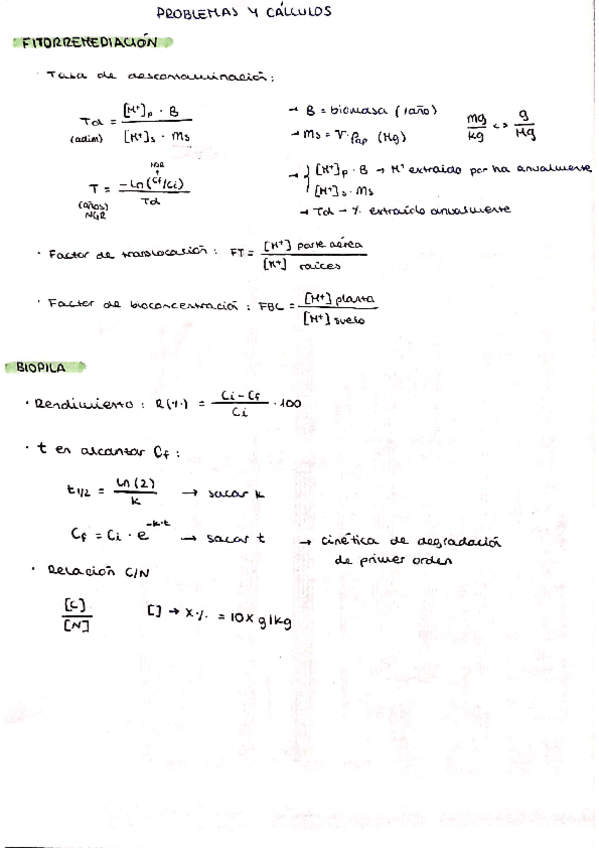 PROBLEMAS Y CÁLCULOS
FITORREMEDIACIÓN
· Tasa de descontaminación:
Td = [M⁺]p · B / [M⁺]s · Ms
(adim)
→ B = biomasa (1 año)
→ Ms = V · ρap (Mg)
mg/kg <> g/Mg
T = -Ln(Cf/Ci) / Td
(años)
→ { [M⁺]p · B → M⁺ extraido por ha anualmente
[M⁺]s · Ms
→ Td → % extraído anualmente
· Factor de translocación: FT = [M⁺] parte aérea / [M⁺] raíces
· Factor de bioconcentración: FBC = [M⁺] planta / [M⁺] suelo
BIOPILA
· Rendimiento: R(%) = Ci - Cf / Ci · 100
· t en alcanzar Cf:
t1/2 = Ln(2) / k → sacar k
Cf = Ci · e^-k·t → sacar t → cinética de degradación
de primer orden
· Relación C/N
[C] / [N] [] → x% = 10x g/kg